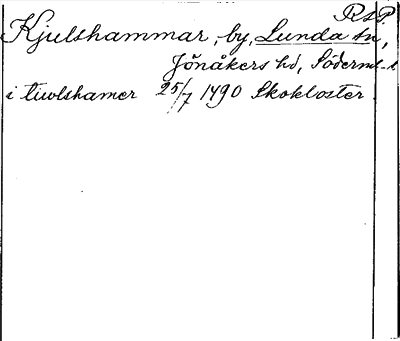 R1P.
Kjulshammar, by, Lunda sn,
Jönåkers hd, Söderml-d
i tiwlshamer 25/7 1490 Skokloster